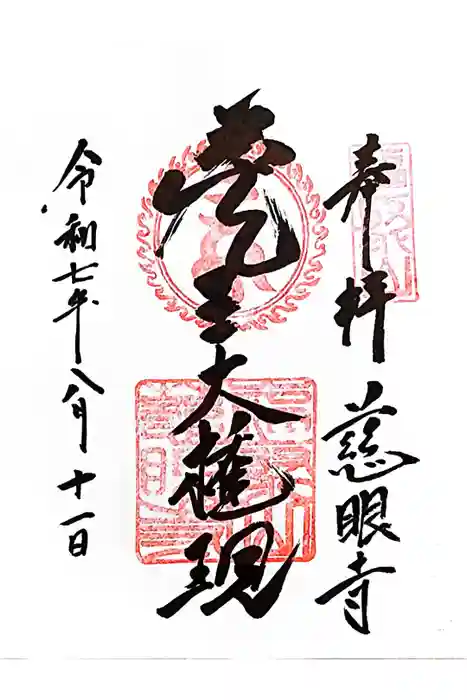 奉拝 慈眼寺
蔵王大権現
令和七年八月十一日